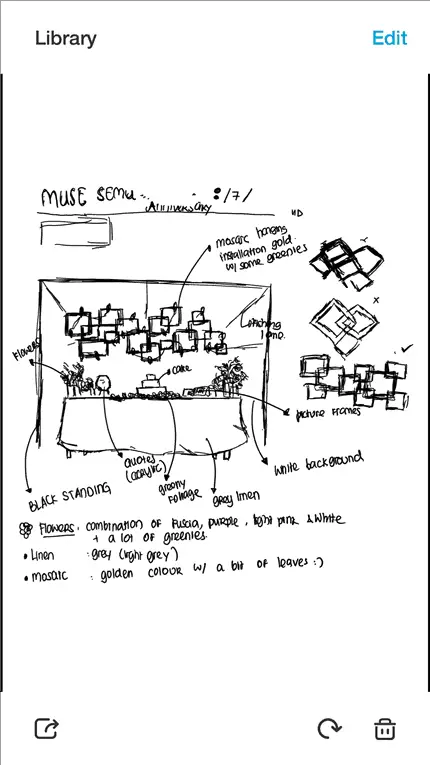 Library
Edit
MUSE
Anniversary
/7/
mosaic hanging
installation gold
w/ some greenies
x
Flowers
cake
picture frames
quotes
(acrylic)
greeny
foliage
grey linen
white background
BLACK STANDING
Flowers. combination of Fuscia, purple, light pink & white
+ a lot of greenies.
• Linen : grey (light grey)
• mosaic : golden colour w/ a bit of leaves :)